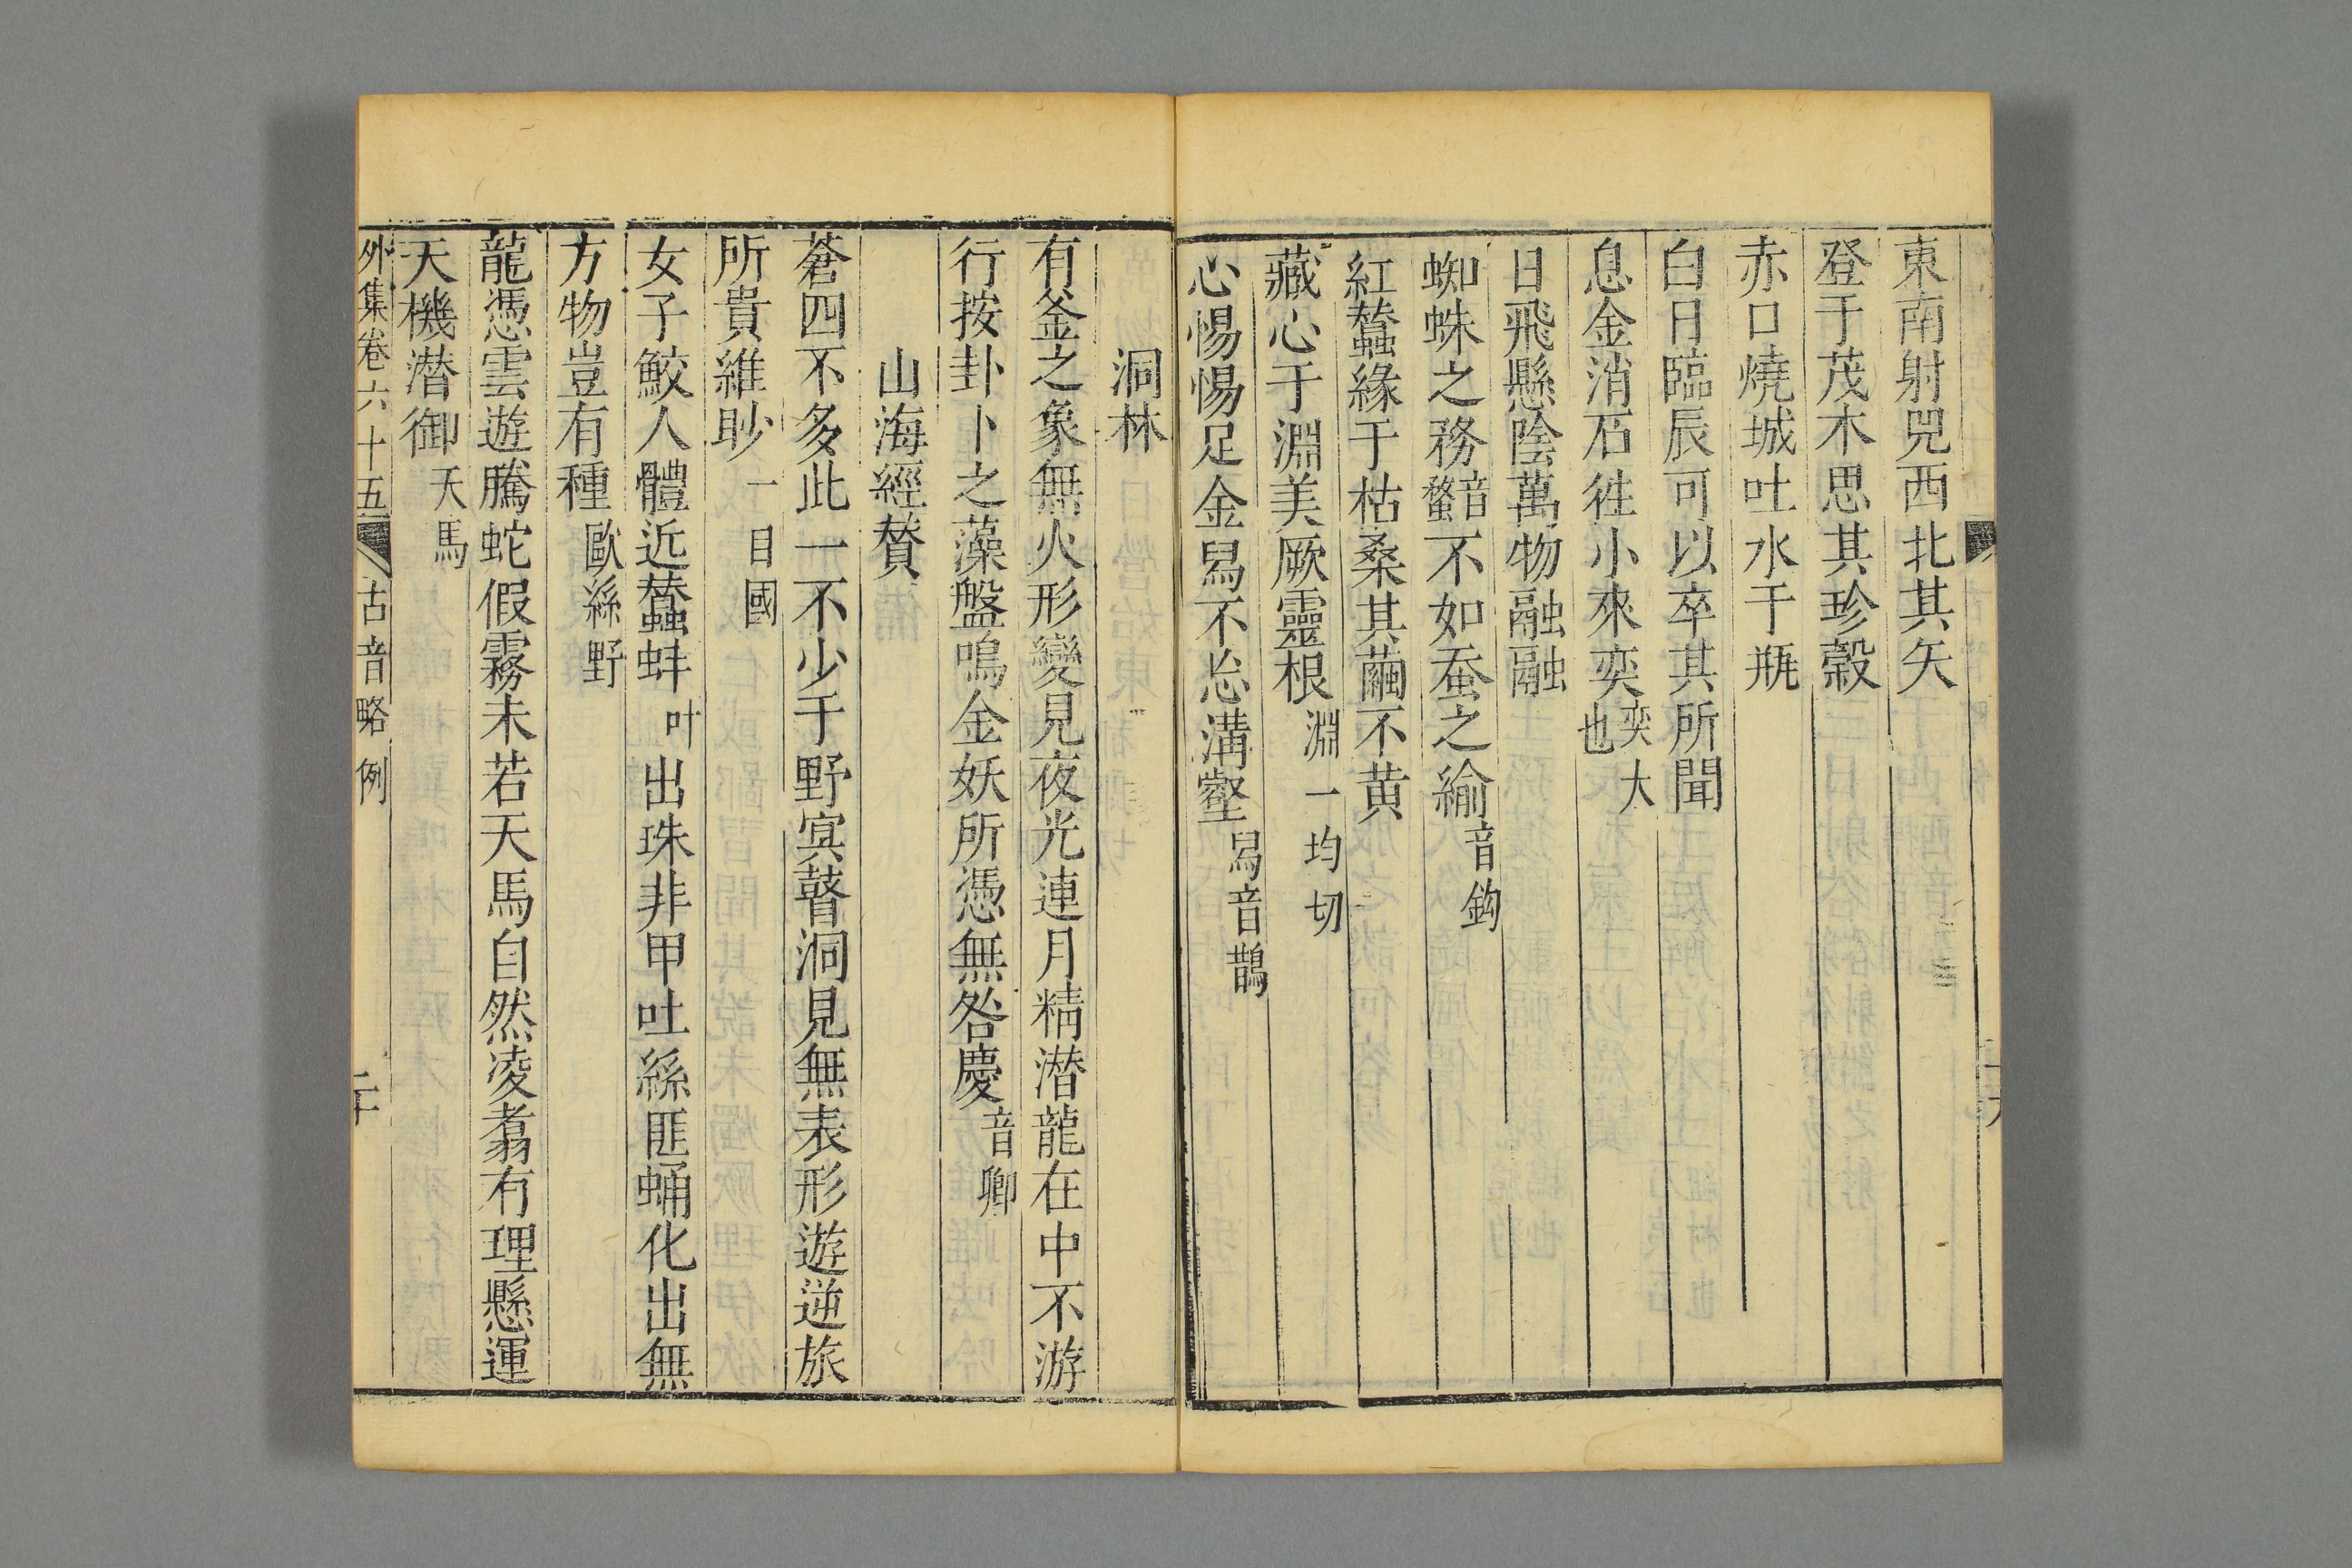 東南射兕西北其矢
登于茂木思其珍穀
赤口燒城吐水于瓶
白日臨辰可以卒其所聞
息金消石徃小來奕奕大也
日飛懸陰萬物融融
蜘蛛之務音蝥不如蚕之緰音鉤
紅蠶緣于枯桑其繭不黄
藏心于淵美厥靈根淵一均切
心惕惕足金舄不㤀溝壑舄音鵲
洞林
有釜之象無火形變見夜光連月精潜龍在中不游
行按卦卜之藻盤鳴金妖所憑無咎慶音卿
山海經賛
蒼四不多此一不少于野冥瞽洞見無表形遊逆旅
所貴維眇一目國
女子鮫人體近蠶蚌叶出珠非甲吐絲匪蛹化出無
方物豈有種歐絲野
龍憑雲遊騰蛇假霧未若天馬自然凌翥有理懸運
天機潜御天馬
外集卷六十五 古音略例 二十